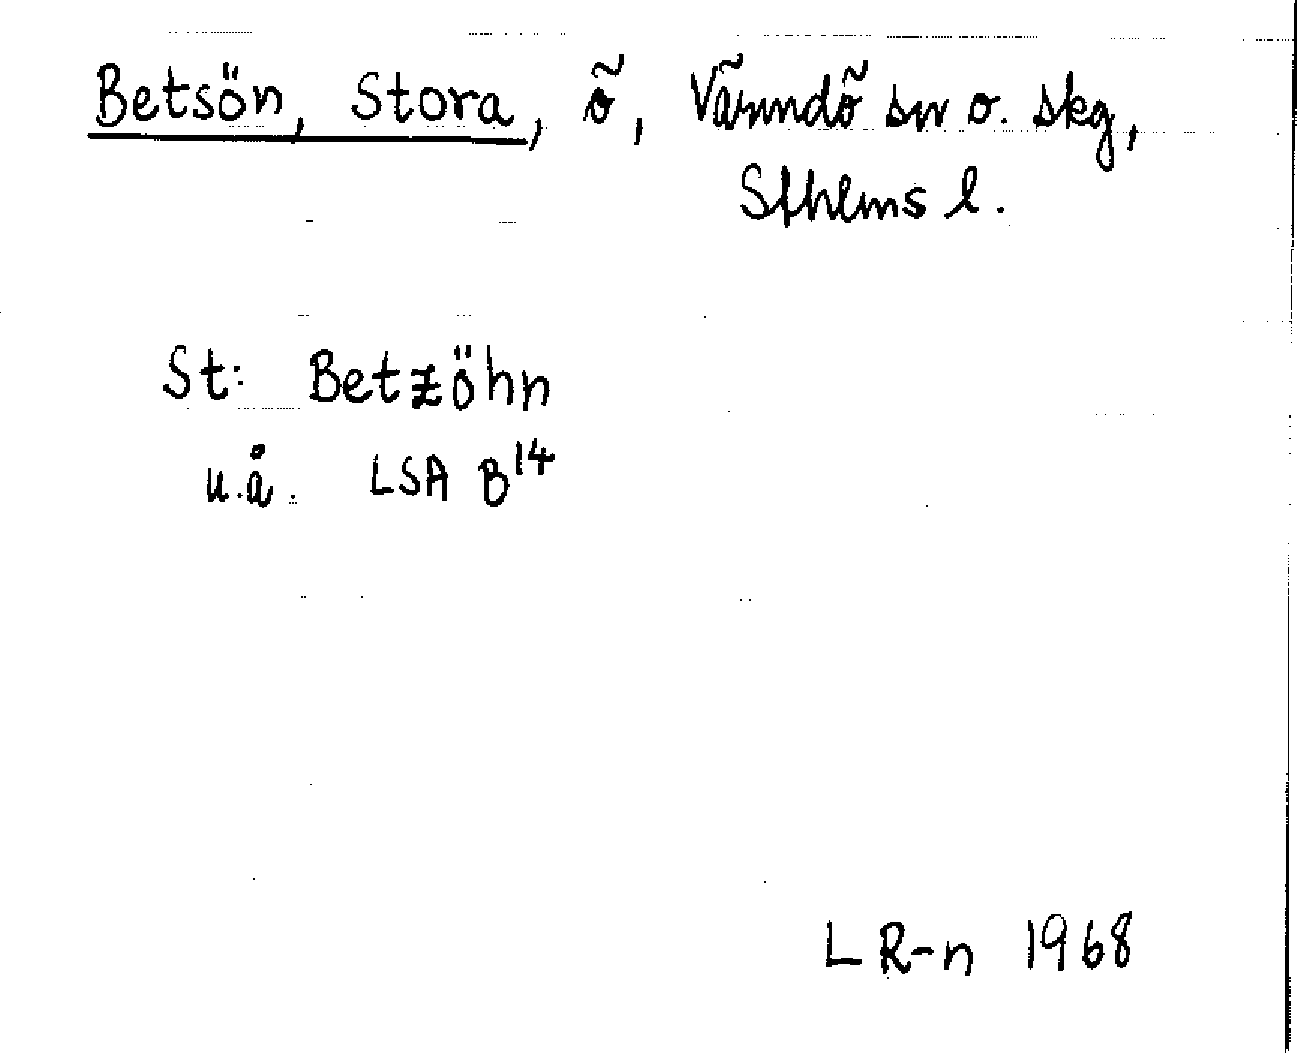 Betsön, Stora, ö, Värmdö sn o. skg,
Sthlms l.
St: Betzöhn
u.å. LSA B14
L R-n 1968